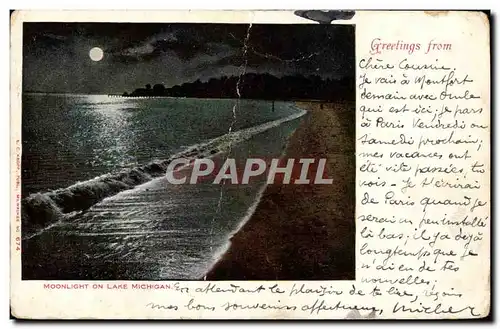 Greetings from
Chère Cousine.
Je vais à Montfort
demain avec Oncle
qui est ici. Je pars
à Paris Vendredi ou
Samedi prochain;
mes vacances ont
été vite passées, tu
vois - Je t'écrirai
de Paris quand je
serai un peu installé
là bas; il y a déjà
longtemps que je
n'ai eu de tes
nouvelles,
CPARAMA
MOONLIGHT ON LAKE MICHIGAN.
En attendant le plaisir de te lire, reçois
mes bons souvenirs affectueux, Michel
No 674